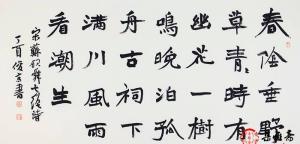 春陰垂野
草青〻時有
幽花一樹
明晚泊孤
舟古祠下
滿川風雨
看潮生
宋蘇欽舜七絕詩
丁酉俊書